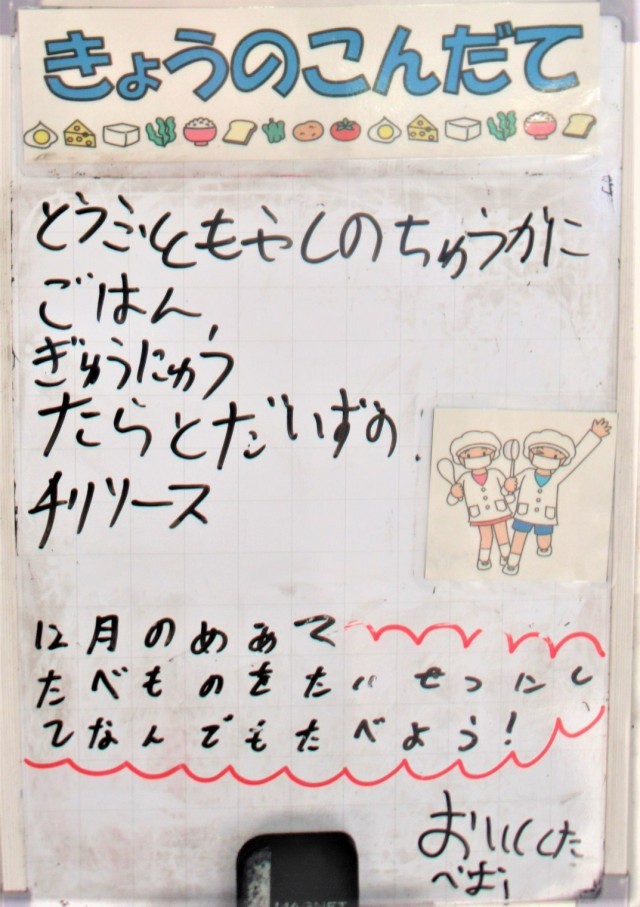 きょうのこんだて
とうふともやしのちゅうかに
ごはん
ぎゅうにゅう
たらとだいずの
チリソース
12月のめあて
たべものをたいせつにし
てなんでもたべよう!
おいしくた
べお!